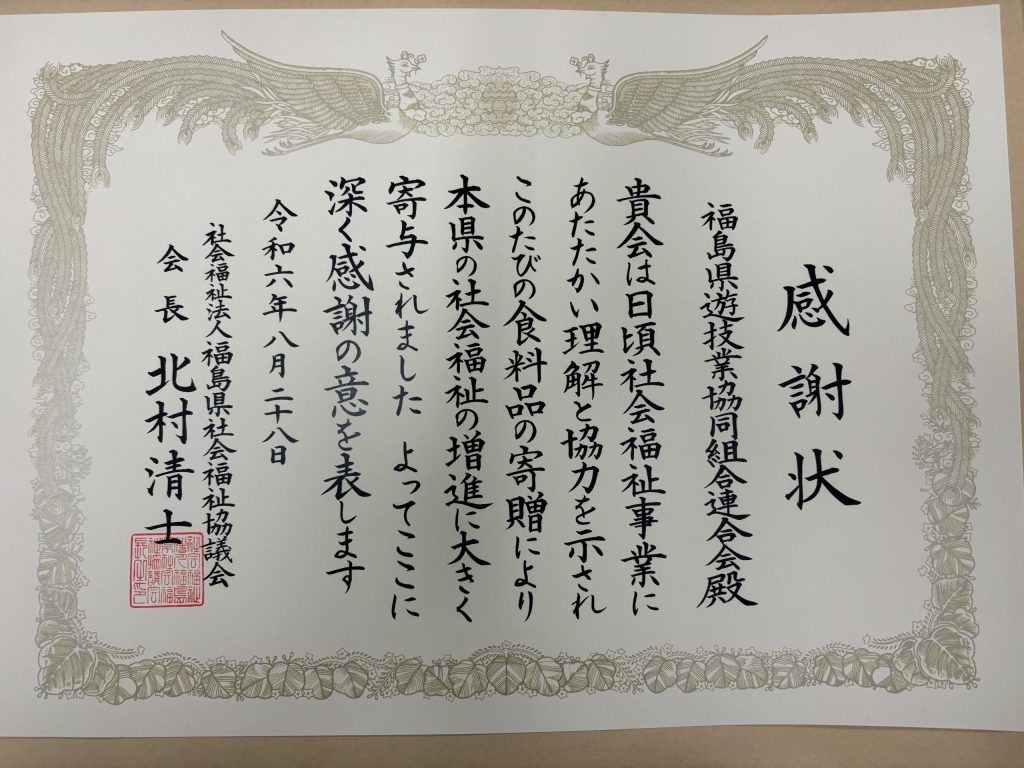 感謝状
福島県遊技業協同組合連合会殿
貴会は日頃社会福祉事業に
あたたかい理解と協力を示され
このたびの食料品の寄贈により
本県の社会福祉の増進に大きく
寄与されました よってここに
深く感謝の意を表します
令和六年八月二十八日
社会福祉法人福島県社会福祉協議会
会長 北村清士